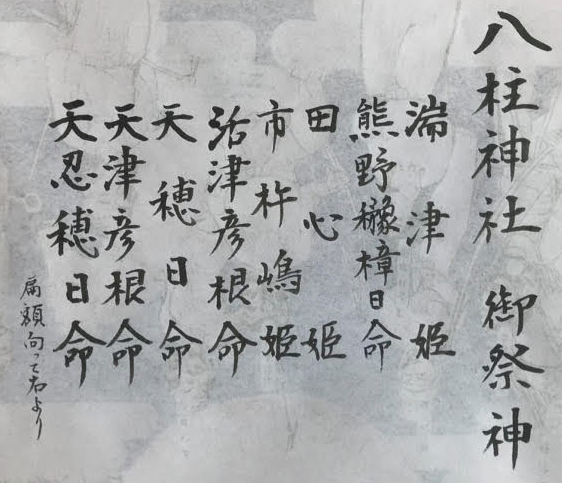 八柱神社 御祭神
湍津姫
熊野櫲樟日命
田心姫
市杵嶋姫
活津彦根命
天穂日命
天津彦根命
天忍穂日命
扁額向って右より